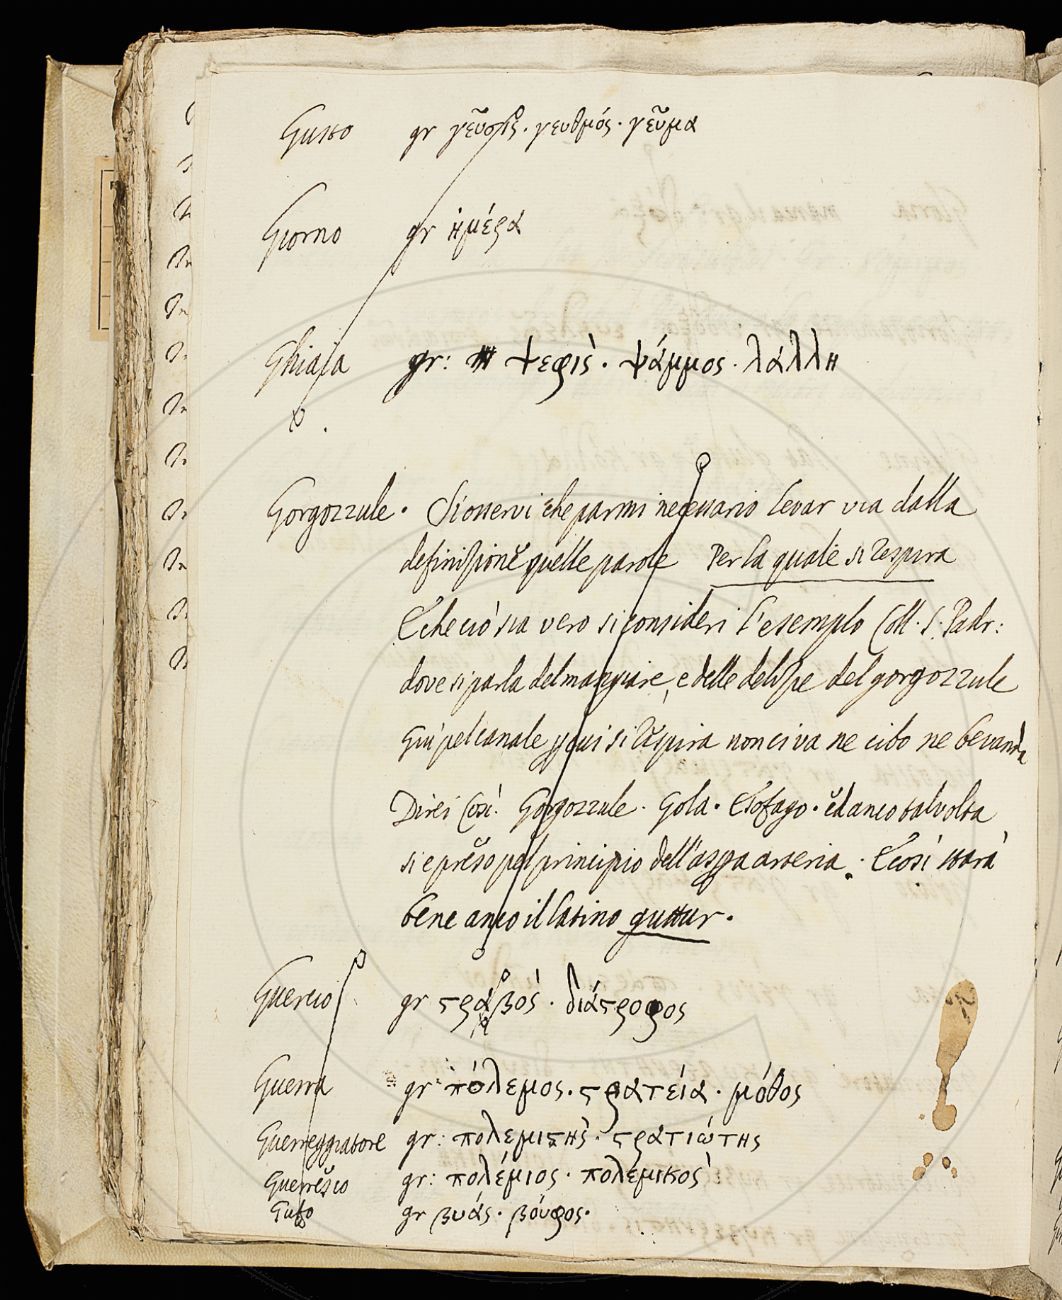 Gusto gr γεῦσις. γευθμός. γεῦμα
Giorno gr ἡμέρα
Ghiaja gr: ψεφὶς. ψάμμος. λάλλη
Gorgozzule. Si osservi che parmi necessario levar via dalla
definizione quelle parole Per la quale si respira
E che ciò sia vero si consideri l'esemplo Coll. S. Padr:
dove si parla del mangiare, e delle delizie del gorgozzule
Qui pel canale p cui si respira non ci va ne cibo ne bevanda
Direi Così. Gorgozzule. Gola. Esofago. ed anco talvolta
si è preso pel principio dell'aspra arteria. E così starà
bene anco il latino guttur.
Guercio gr στραβὸς. διάστροφος
Guerra gr: πόλεμος. στρατεία. μόθος
Guerreggiatore gr: πολεμιστὴς. στρατιώτης
Guerresco gr: πολέμιος. πολεμικὸς
Gufo gr βυάς. βούφος.